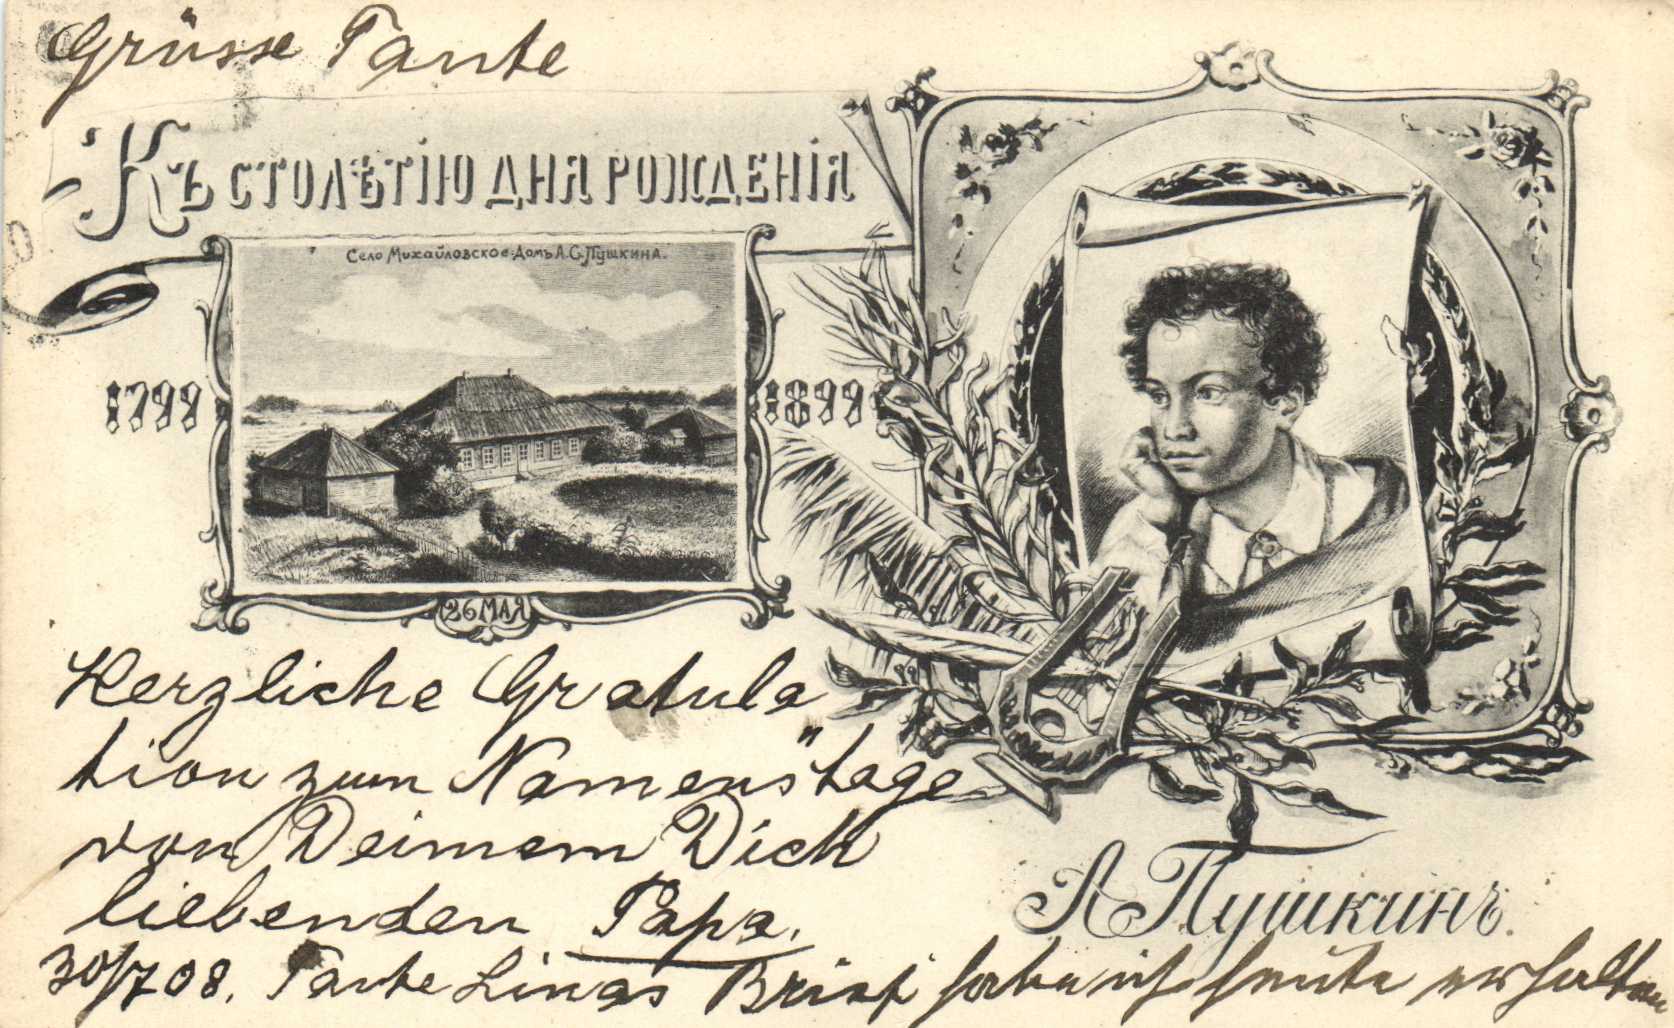 Grüsse Tante
Къ столѣтію дня рожденія
Село Михайловское. Домъ А. С. Пушкина.
1799
1899
26 МАЯ
Herzliche Gratula
tion zum Namenstage
von Deinem Dich
liebenden Papa.
А. Пушкинъ.
30/7 08. Tante Linas Brief habe ich heute erhalten